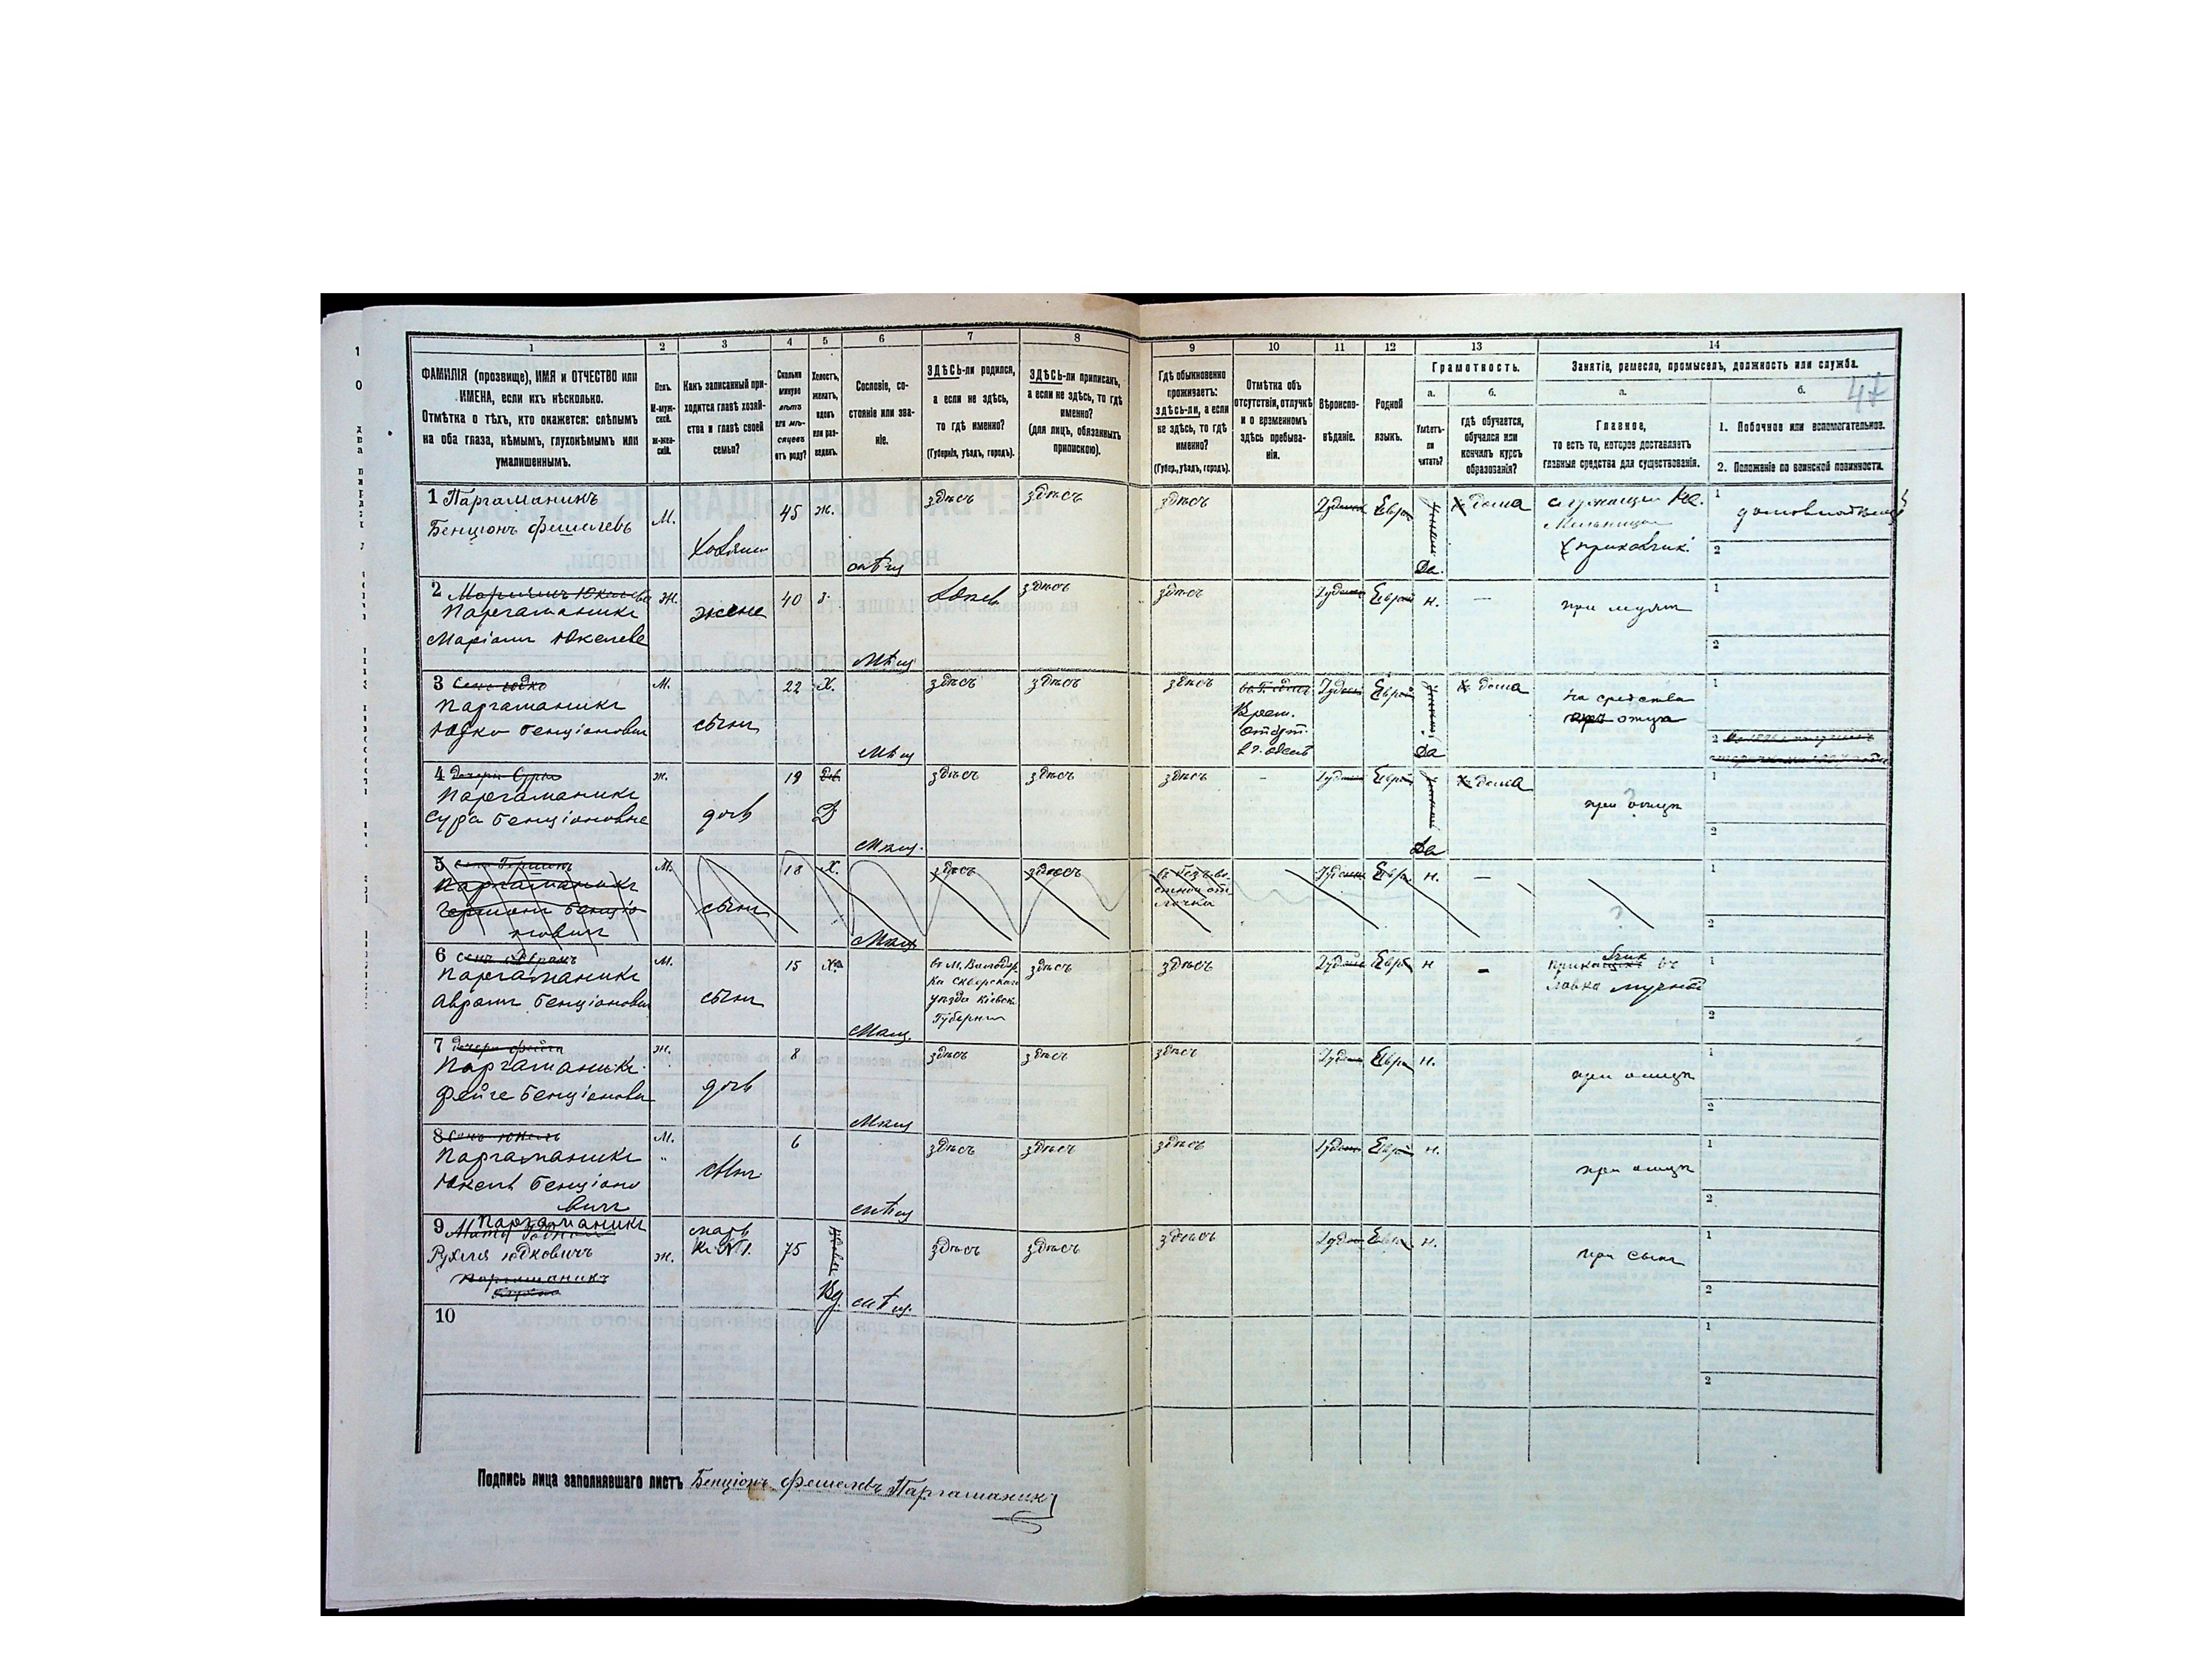 1 2 3 4 5 6 7 8 9 10 11 12 13 14
ФАМИЛІЯ (прозвище), ИМЯ и ОТЧЕСТВО или
ИМЕНА, если ихъ нѣсколько.
Отмѣтка о тѣхъ, кто окажется: слѣпымъ
на оба глаза, нѣмымъ, глухонѣмымъ или
умалишеннымъ.
Полъ.
М-муж-
ской.
Ж-жен-
скій.
Какъ записанный при-
ходится главѣ хозяй-
ства и главѣ своей
семьи?
Сколько
минуло
лѣтъ
или мѣ-
сяцевъ
отъ роду?
Холостъ,
женатъ,
вдовъ
или раз-
веденъ.
Сословіе, со-
стояніе или зва-
ніе.
ЗДѢСЬ-ли родился,
а если не здѣсь,
то гдѣ именно?
(Губернія, уѣздъ, городъ).
ЗДѢСЬ-ли приписанъ,
а если не здѣсь, то гдѣ
именно?
(для лицъ, обязанныхъ
припискою).
Гдѣ обыкновенно
проживаетъ:
здѣсь-ли, а если
не здѣсь, то гдѣ
именно?
(Губер., уѣздъ, городъ).
Отмѣтка объ
отсутствіи, отлучкѣ
и о временномъ
здѣсь пребыва-
ніи.
Вѣроиспо-
вѣданіе.
Родной
языкъ.
Грамотность.
а. б.
Умѣетъ-
ли
читать?
гдѣ обучается,
обучался или
кончилъ курсъ
образованія?
Занятіе, ремесло, промыселъ, должность или служба.
47
а. б.
Главное,
то есть то, которое доставляетъ
главныя средства для существованія.
1. Побочное или вспомогательное.
2. Положеніе по воинской повинности.
1 Паргаманикъ
Бенціонъ Фишелевъ
М. Хозяин 45 ж. здѣсь здѣсь здѣсь Евр Да. дома
служащи на
Мельнице
приказчик.
1
2
2
Паргаманикъ
Маріам Юкелева
Ж. жена 40 з. Мѣщ здѣсь здѣсь Н. —
при мужѣ
1
2
3
Паргаманикъ
Юдко Бенціонович
М. сынъ 22 Х. Мѣщ здѣсь здѣсь здѣсь
Врем.
в г. Одесѣ
Евр Да дома
на средства
отца
1
2
4
Паргаманикъ
Сура Бенціоновна
ж. дочь 19 Д Мѣщ. здѣсь здѣсь здѣсь Евр Да дома
при отцѣ
1
2
5
Паргаманикъ
Бенціо
нович
М. сынъ 18 Х. Мѣщ здѣсь здѣсь Евр. Н. —
1
2
6
Паргаманикъ
Аврам Бенціонович
М. сынъ 15 Х. Мѣщ.
въ м. Володар
ка Сквирскаго
уѣзда Кіевск.
Губерніи
здѣсь здѣсь Евр Н -
въ
лавке мучной
1
2
7
Паргаманикъ
Фейге Бенціоновн
ж. дочь 8 Мѣщ здѣсь здѣсь здѣсь Евр Н.
при отцѣ
1
2
8
Паргаманикъ
Юкель Бенціоно
вич
М. сынъ 6 Мѣщ здѣсь здѣсь здѣсь Евр Н.
при отцѣ
1
2
9 Паргаманикъ
Рухля Юдковичъ
Ж. матъ
къ №1. 75 Вд. Мѣщ. здѣсь здѣсь здѣсь Н.
при сынѣ
1
2
10
1
2
Подпись лица заполнявшаго листъ Бенціонъ Фишелевъ Паргаманикъ